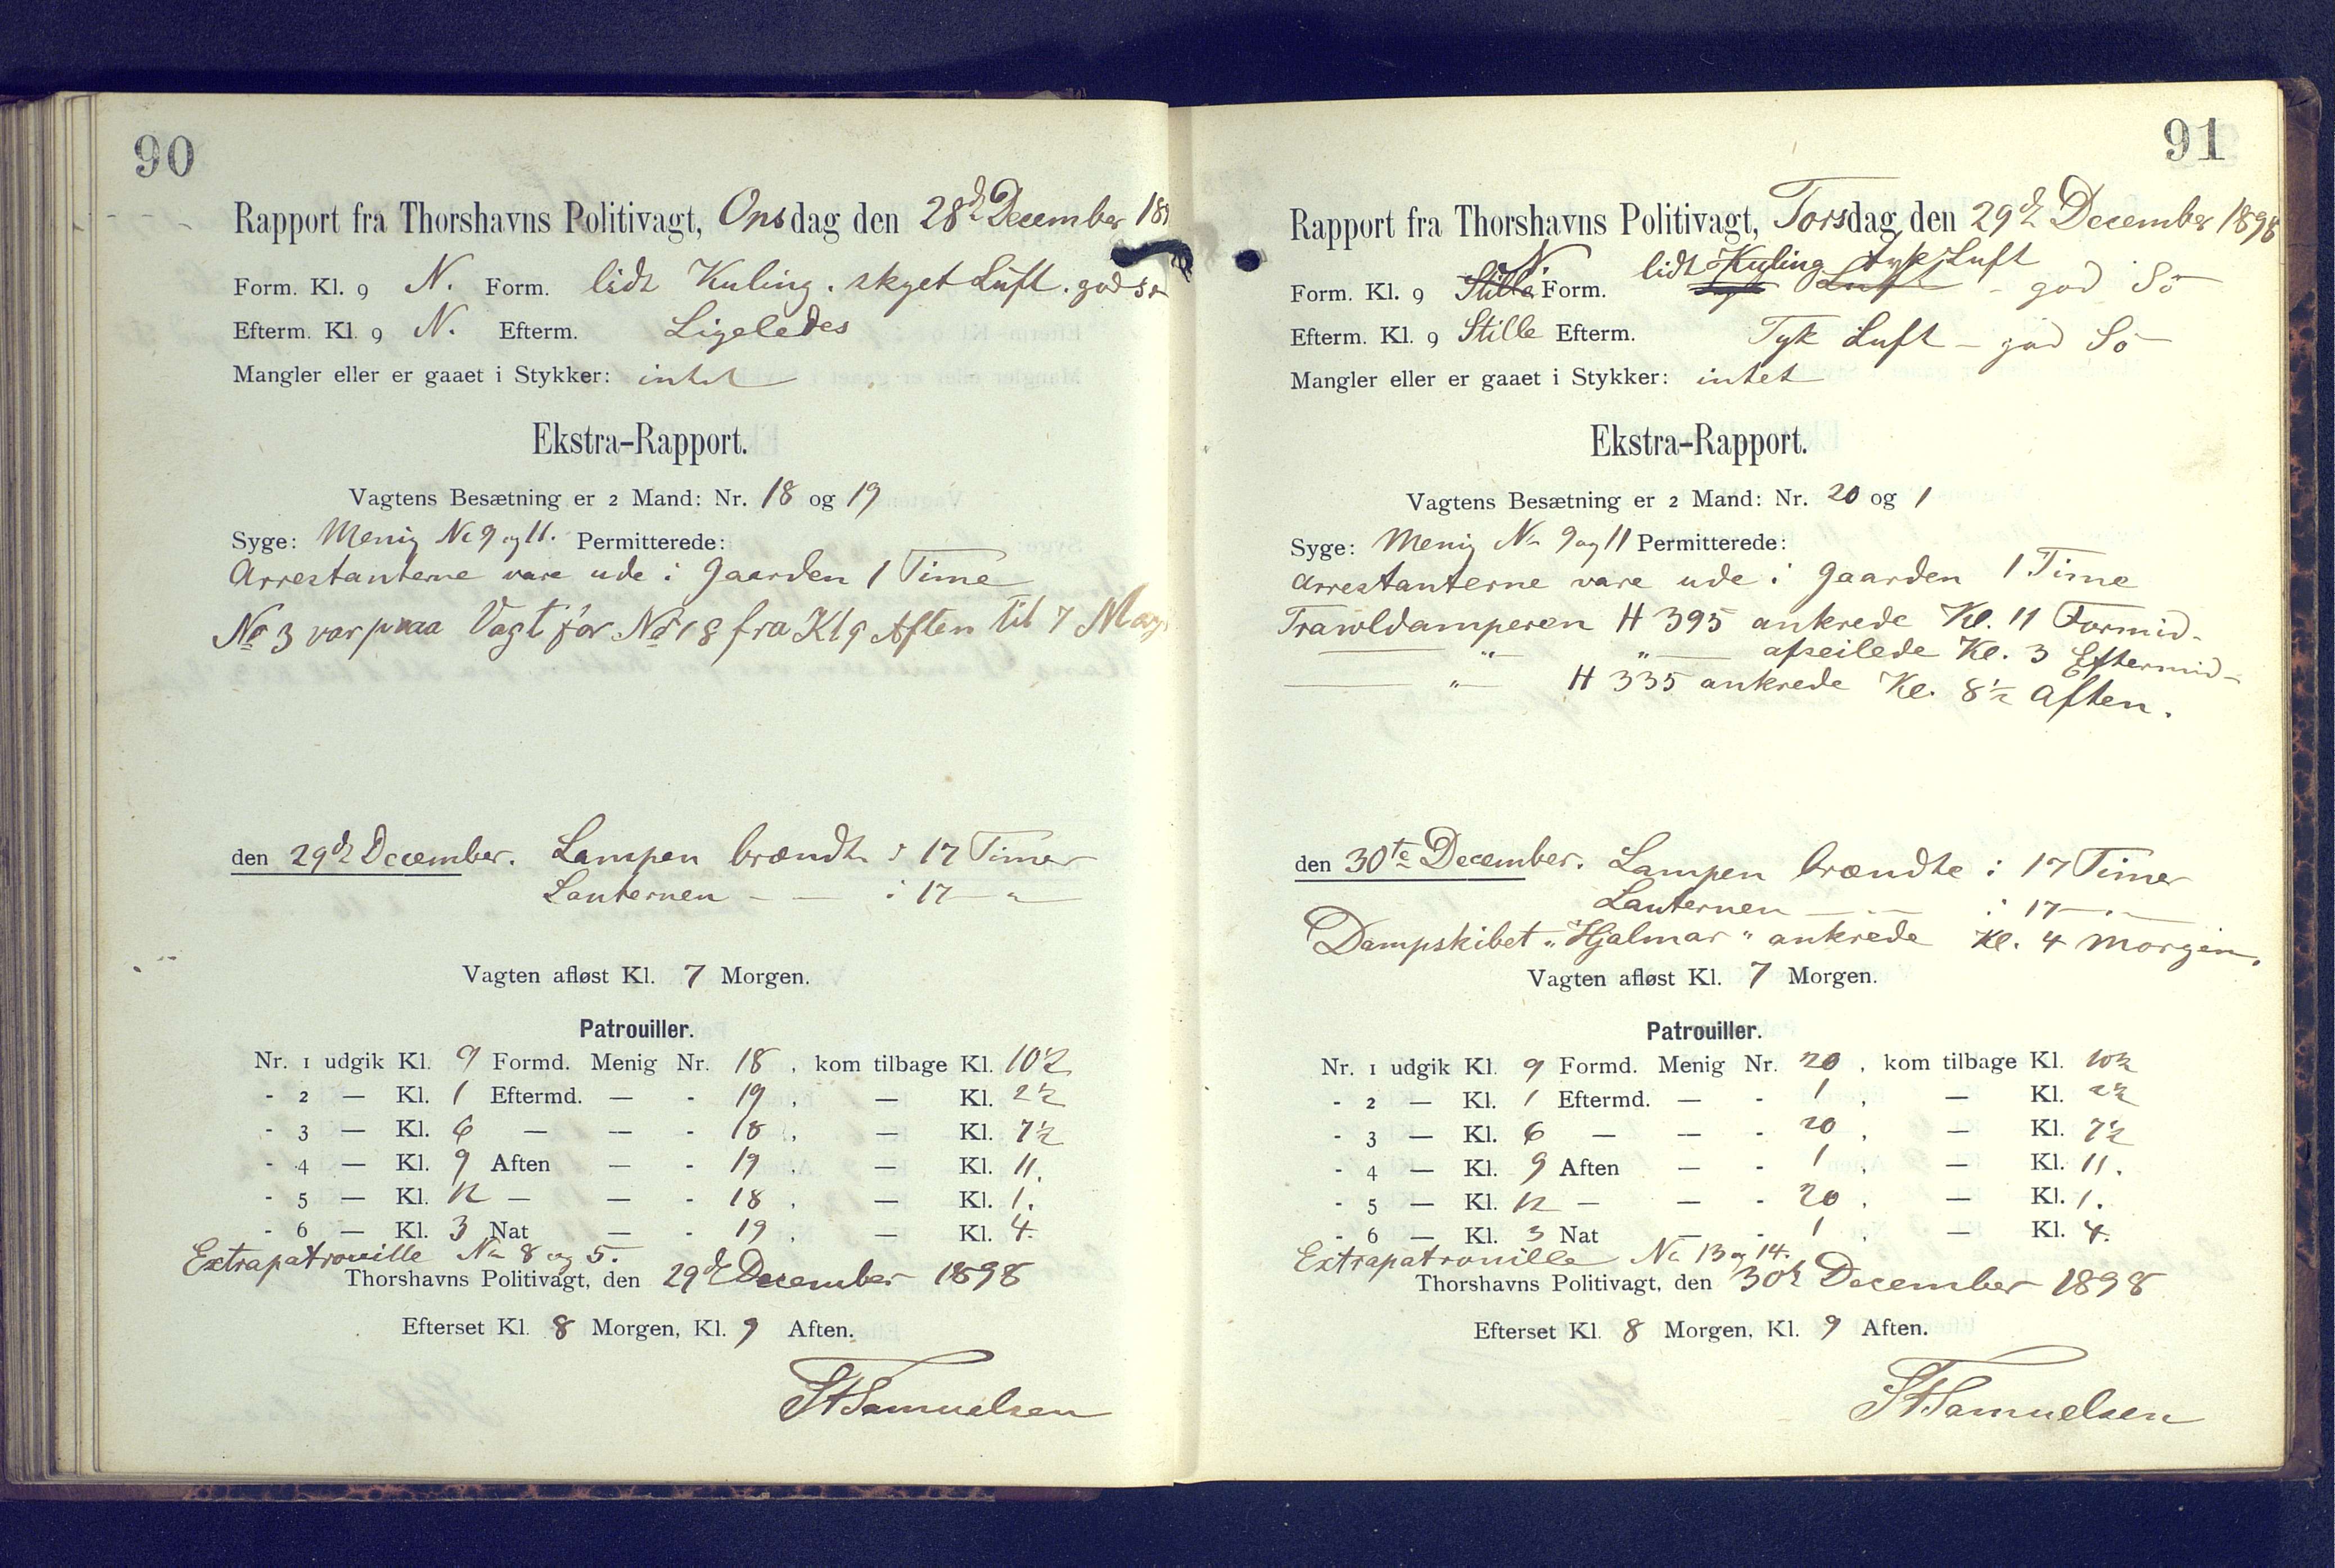 90
Rapport fra Thorshavns Politivagt, Onsdag den 28d December 189
Form. Kl. 9 N. Form. lidt Kuling. skyet Luft. god Sø
Efterm. Kl. 9 N. Efterm. Ligeledes
Mangler eller er gaaet i Stykker: intet
Ekstra-Rapport.
Vagtens Besætning er 2 Mand: Nr. 18 og 19
Syge: Menig No 9 og 11. Permitterede:
Arrestanterne vare ude i Gaarden 1 Time
No 3 var paa Vagt for No 18 fra Kl 9 Aften til 7 Morg
den 29d December. Lampen brændte i 17 Timer
Lanternen — — i 17 — "
Vagten afløst Kl. 7 Morgen.
Patrouiller.
Nr. 1 udgik Kl. 9 Formd. Menig Nr. 18, kom tilbage Kl. 10½
- 2 — Kl. 1 Eftermd. — - 19, — Kl. 2½
- 3 — Kl. 6 — — - 18, — Kl. 7½
- 4 — Kl. 9 Aften — - 19, — Kl. 11.
- 5 — Kl. 12 — — - 18, — Kl. 1.
- 6 — Kl. 3 Nat — - 19, — Kl. 4.
Extrapatrouille No 8 og 5.
Thorshavns Politivagt, den 29d December 1898
Efterset Kl. 8 Morgen, Kl. 9 Aften.
Samuelsen
91
Rapport fra Thorshavns Politivagt, Torsdag den 29d December 1898
Form. Kl. 9 Stille N. Form. lidt Kuling tyk Luft Luft - god Sö
Efterm. Kl. 9 Stille Efterm. Tyk Luft - god Sö
Mangler eller er gaaet i Stykker: intet
Ekstra-Rapport.
Vagtens Besætning er 2 Mand: Nr. 20 og 1
Syge: Menig No 9 og 11 Permitterede:
Arrestanterne vare ude i Gaarden 1 Time
Trawldamperen H 395 ankrede Kl. 11 Formid-
— " — " — afseilede Kl. 3 Eftermid-
— " — H 335 ankrede Kl. 8½ Aften.
den 30te December. Lampen brændte i 17 Timer
Lanternen — — i 17 — " —
Dampskibet "Hjalmar" ankrede Kl. 4 Morgen.
Vagten afløst Kl. 7 Morgen.
Patrouiller.
Nr. 1 udgik Kl. 9 Formd. Menig Nr. 20, kom tilbage Kl. 10½
- 2 — Kl. 1 Eftermd. — - 1, — Kl. 2½
- 3 — Kl. 6 — — - 20, — Kl. 7½
- 4 — Kl. 9 Aften — - 1, — Kl. 11.
- 5 — Kl. 12 — — - 20, — Kl. 1.
- 6 — Kl. 3 Nat — - 1, — Kl. 4.
Extrapatrouille No 13 og 14.
Thorshavns Politivagt, den 30t December 1898
Efterset Kl. 8 Morgen, Kl. 9 Aften.
Samuelsen